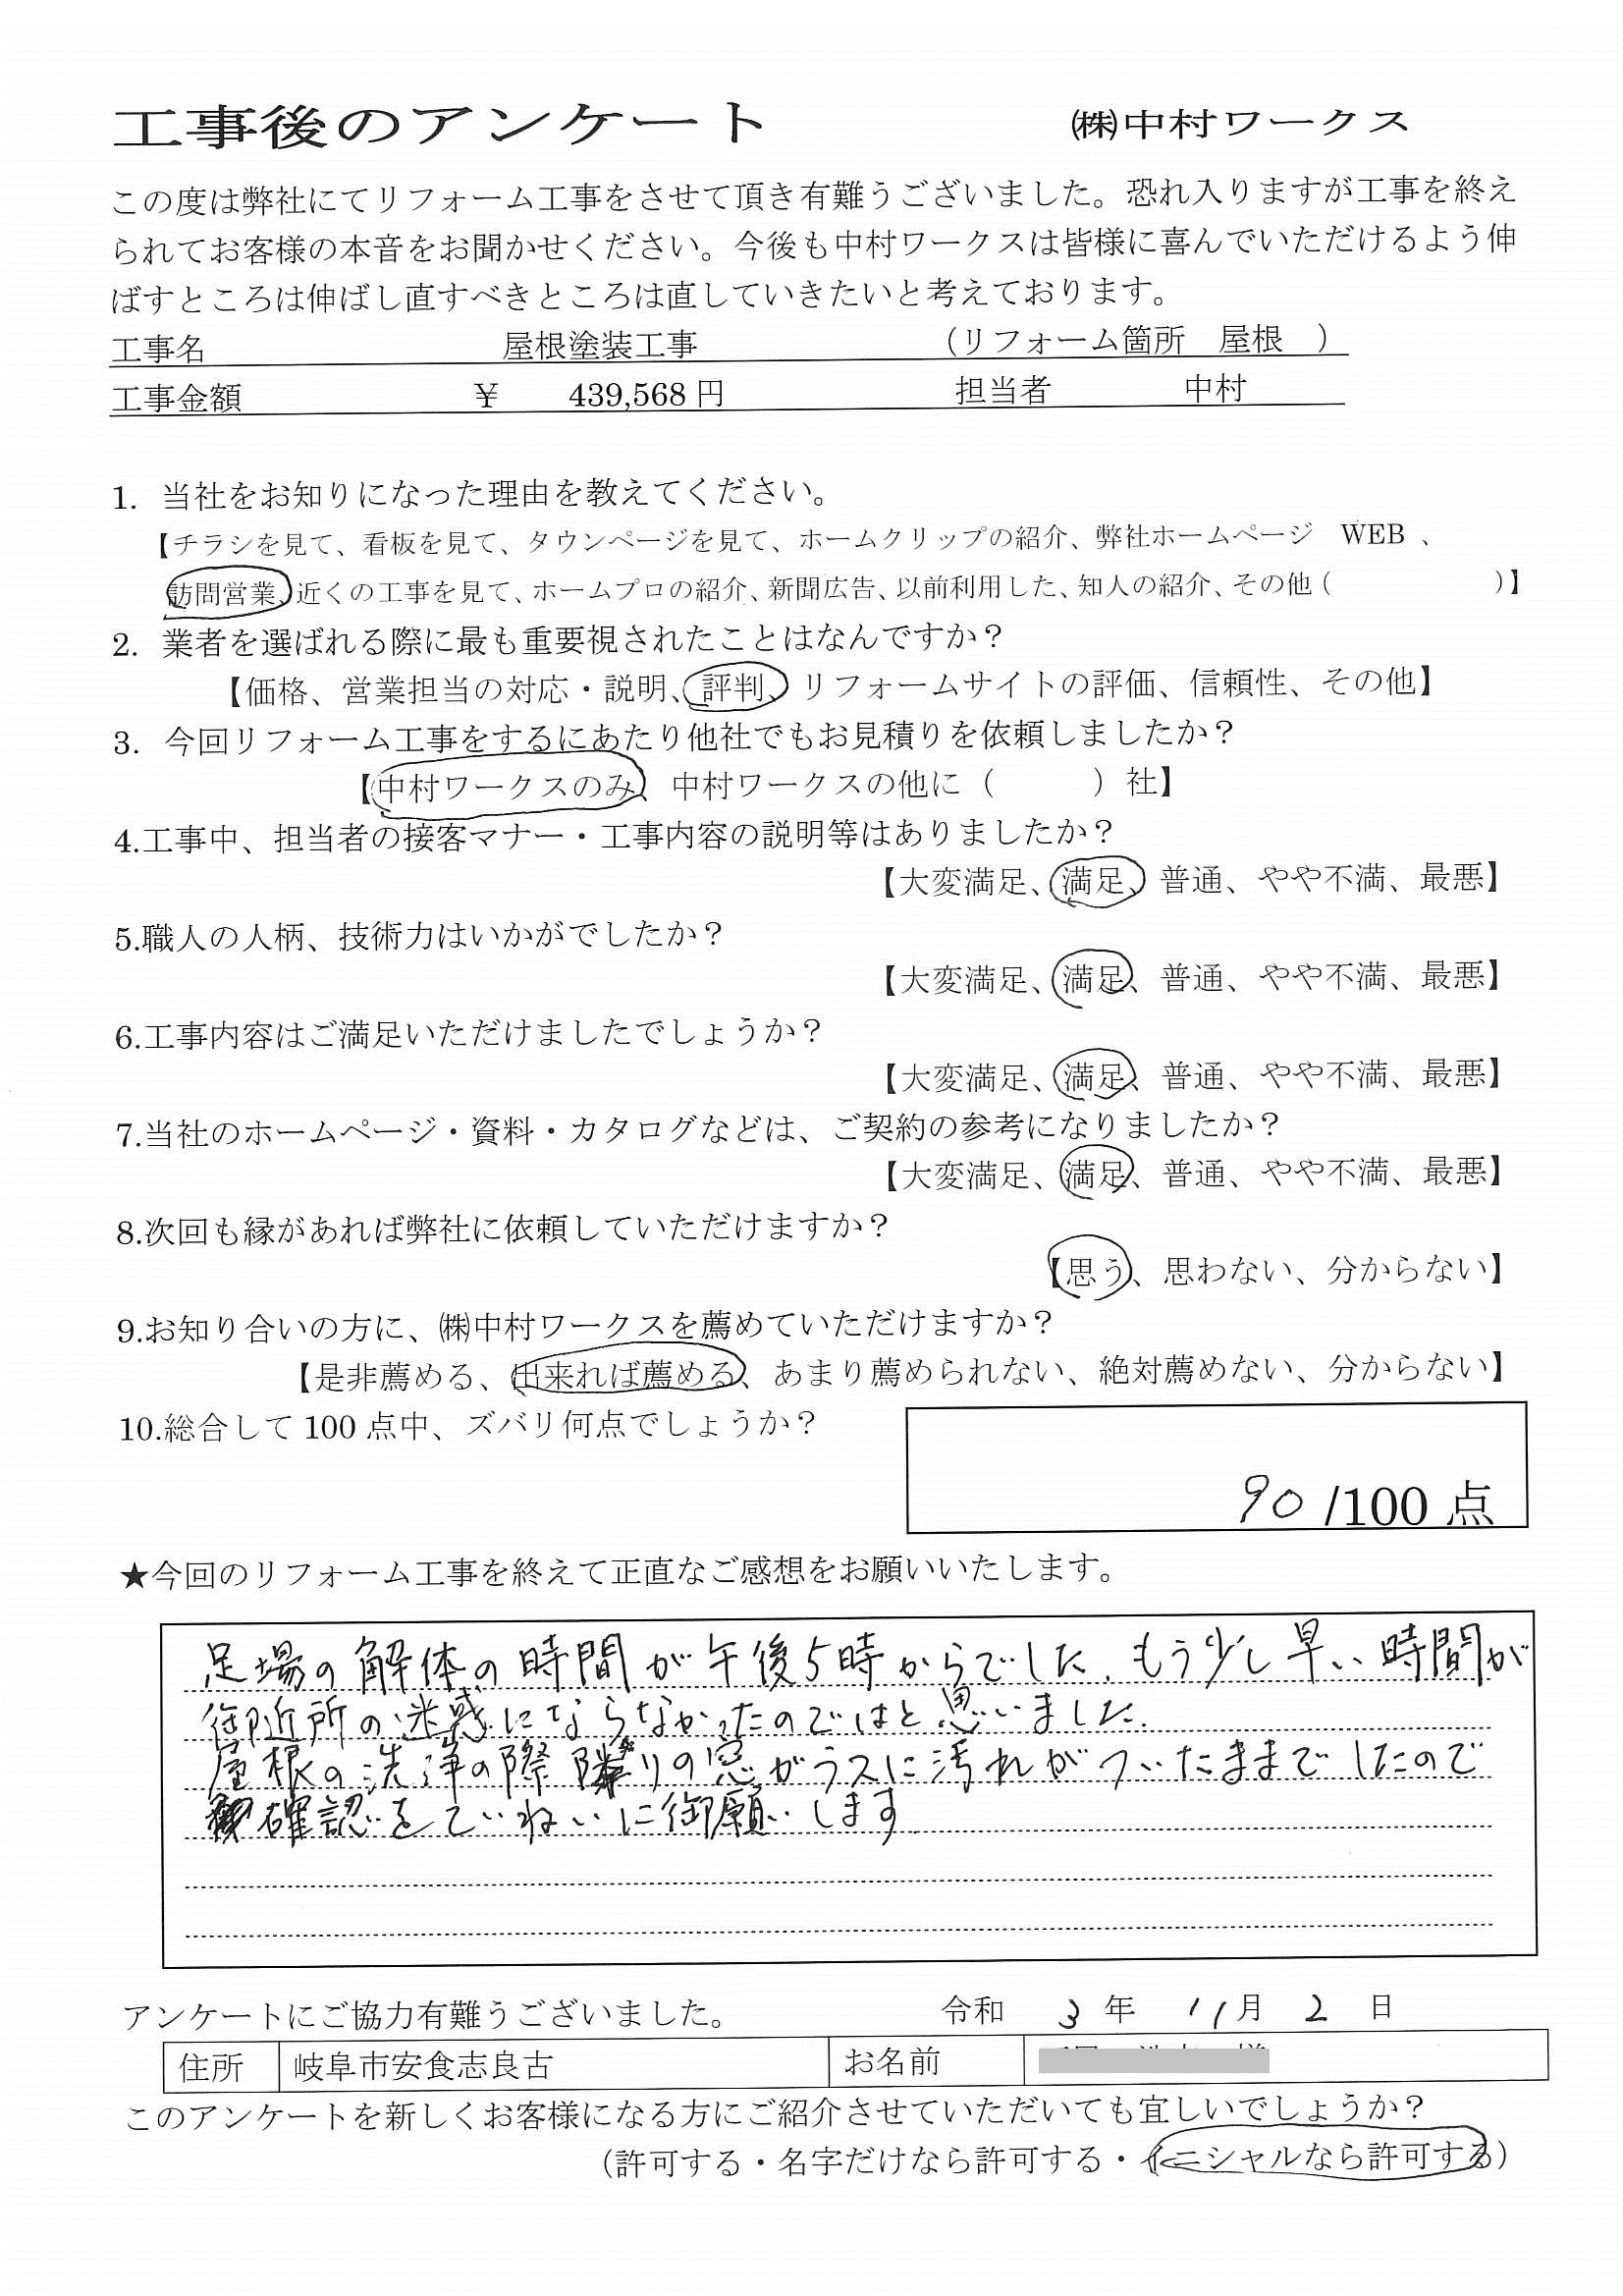 工事後のアンケート ㈱中村ワークス
この度は弊社にてリフォーム工事をさせて頂き有難うございました。恐れ入りますが工事を終え
られてお客様の本音をお聞かせください。今後も中村ワークスは皆様に喜んでいただけるよう伸
ばすところは伸ばし直すべきところは直していきたいと考えております。
工事名 屋根塗装工事 （リフォーム箇所 屋根 ）
工事金額 ￥ 439,568 円 担当者 中村
1. 当社をお知りになった理由を教えてください。
【チラシを見て、看板を見て、タウンページを見て、ホームクリップの紹介、弊社ホームページ WEB 、
訪問営業、近くの工事を見て、ホームプロの紹介、新聞広告、以前利用した、知人の紹介、その他（ ）】
2. 業者を選ばれる際に最も重要視されたことはなんですか？
【価格、営業担当の対応・説明、評判、リフォームサイトの評価、信頼性、その他】
3. 今回リフォーム工事をするにあたり他社でもお見積りを依頼しましたか？
【中村ワークスのみ、中村ワークスの他に（ ）社】
4.工事中、担当者の接客マナー・工事内容の説明等はありましたか？
【大変満足、満足、普通、やや不満、最悪】
5.職人の人柄、技術力はいかがでしたか？
【大変満足、満足、普通、やや不満、最悪】
6.工事内容はご満足いただけましたでしょうか？
【大変満足、満足、普通、やや不満、最悪】
7.当社のホームページ・資料・カタログなどは、ご契約の参考になりましたか？
【大変満足、満足、普通、やや不満、最悪】
8.次回も縁があれば弊社に依頼していただけますか？
【思う、思わない、分からない】
9.お知り合いの方に、㈱中村ワークスを薦めていただけますか？
【是非薦める、出来れば薦める、あまり薦められない、絶対薦めない、分からない】
10.総合して 100 点中、ズバリ何点でしょうか？
90 /100 点
★今回のリフォーム工事を終えて正直なご感想をお願いいたします。
足場の解体の時間が午後5時からでした。もう少し早い時間が
御近所の迷惑にならなかったのではと思いました.
屋根の洗浄の際隣りの窓ガラスに汚れがついたままでしたので
確認をていねいに御願いします
アンケートにご協力有難うございました。 令和 3 年 11月 2 日
住所 岐阜市安食志良古 お名前
このアンケートを新しくお客様になる方にご紹介させていただいても宜しいでしょうか？
（許可する・名字だけなら許可する・イニシャルなら許可する）